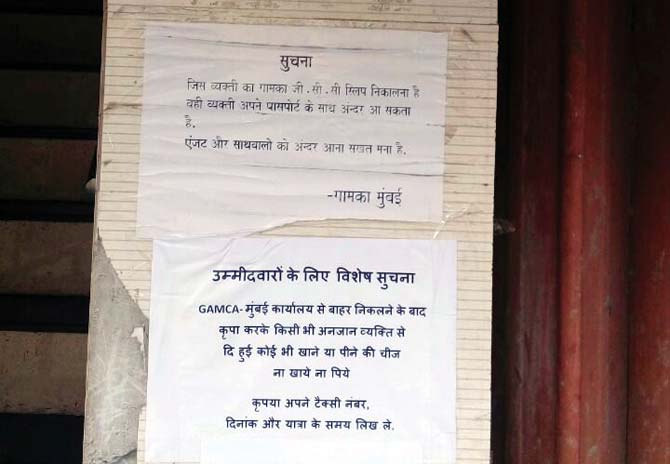 सुचना
जिस व्यक्ती का गामका जी.सी.सी स्लिप निकालना है
वही व्यक्ती अपने पासपोर्ट के साथ अन्दर आ सकता
है.
एंजट और साथवालो को अन्दर आना सखत मना है.
-गामका मुंबई
उम्मीदवारों के लिए विशेष सुचना
GAMCA- मुंबई कार्यालय से बाहर निकलने के बाद
कृपा करके किसी भी अनजान व्यक्ति से
दि हुई कोई भी खाने या पीने की चीज
ना खाये ना पिये
कृपया अपने टैक्सी नंबर,
दिनांक और यात्रा के समय लिख ले.